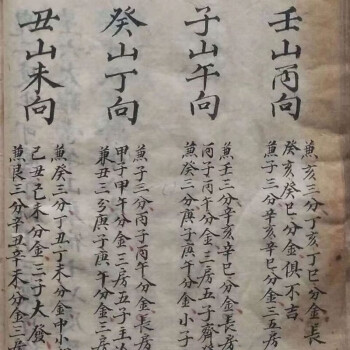 壬山丙向
蒹亥三分丁亥丁巳分金長
癸亥癸巳分金俱不吉
蒹子三分辛亥辛巳分金三五房
子山午向
蒹壬三分辛亥辛巳分金長房
丙子丙午分金三房五子齊
蒹癸三分庚子庚午分金小子
癸山丁向
蒹子三分丙子丙午分金長房
甲子甲午分金三房五子
蒹丑三分庚子庚午分金三房
丑山未向
蒹癸三分丁丑丁未分金中小
己丑己未分金三子大發
蒹艮三分辛丑辛未分金三房